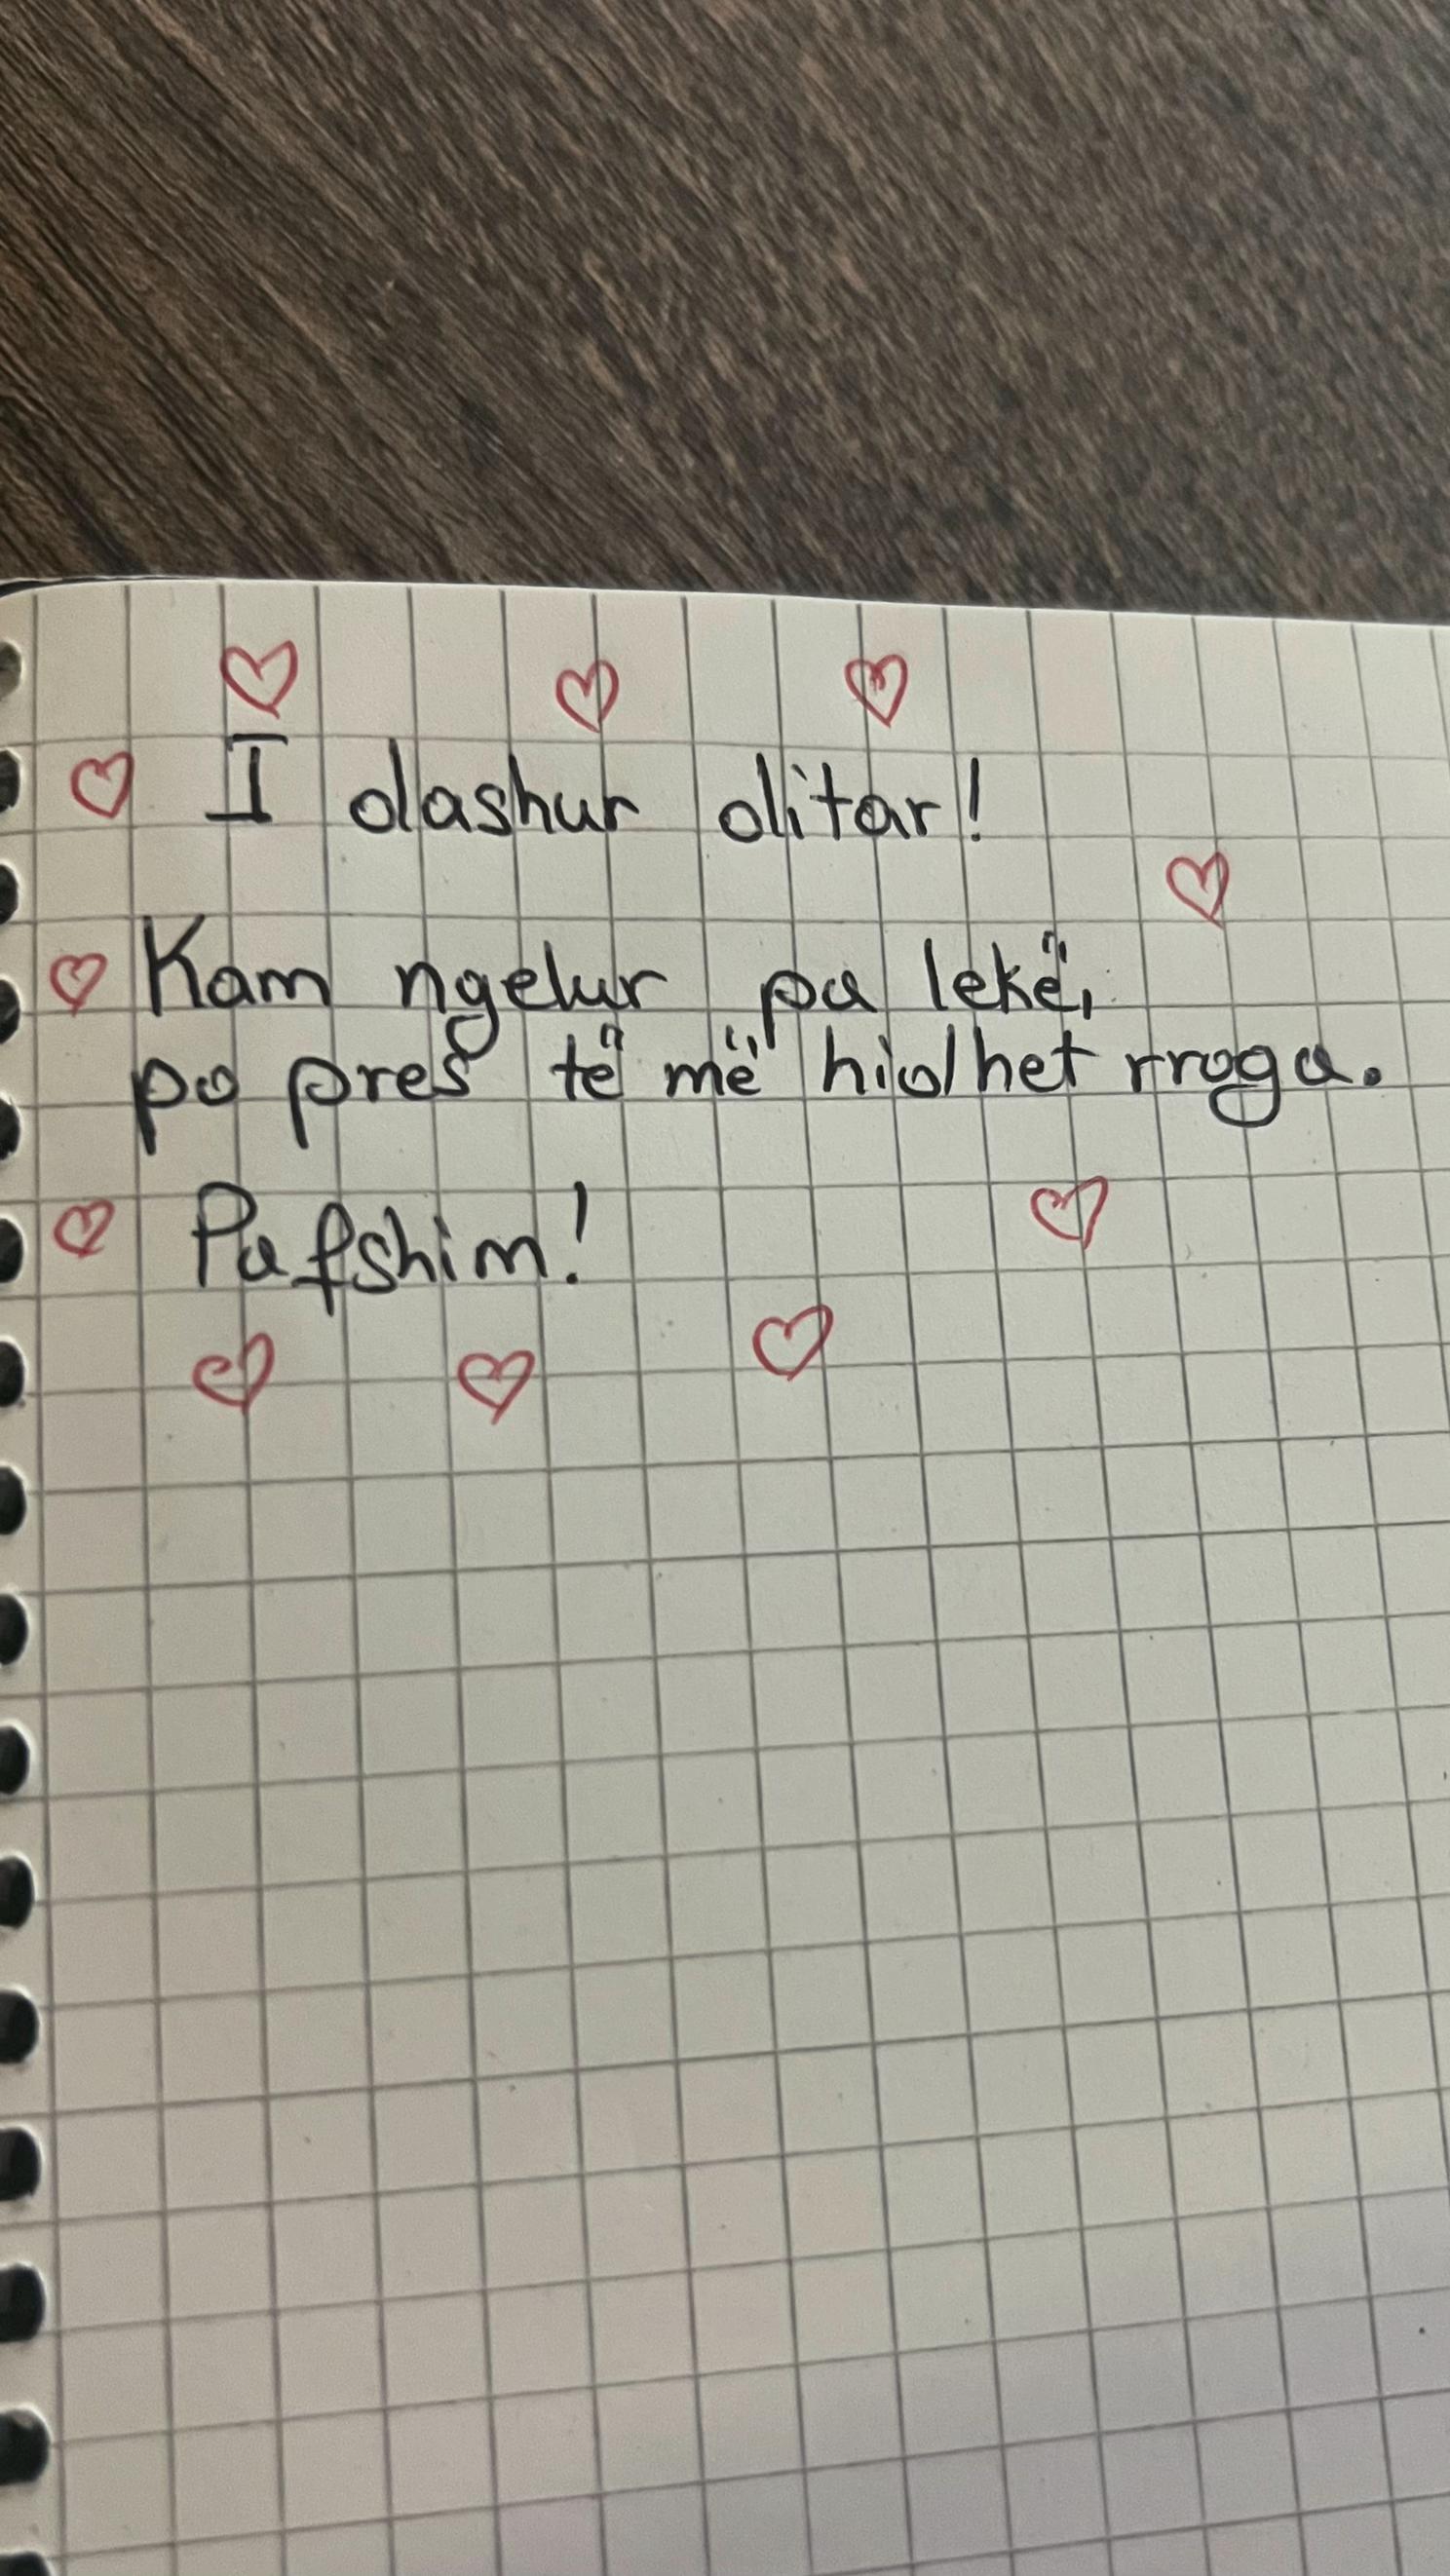 I dashur ditar!
Kam ngelur pa lekë,
po pres të më hidhet rroga.
Pafshim!